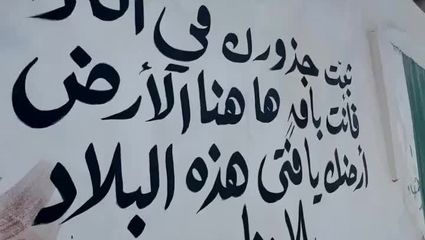 ثبت جذورك في
فأنت باقٍ ها هنا الأرض
أرضك يا فتى هذه البلاد